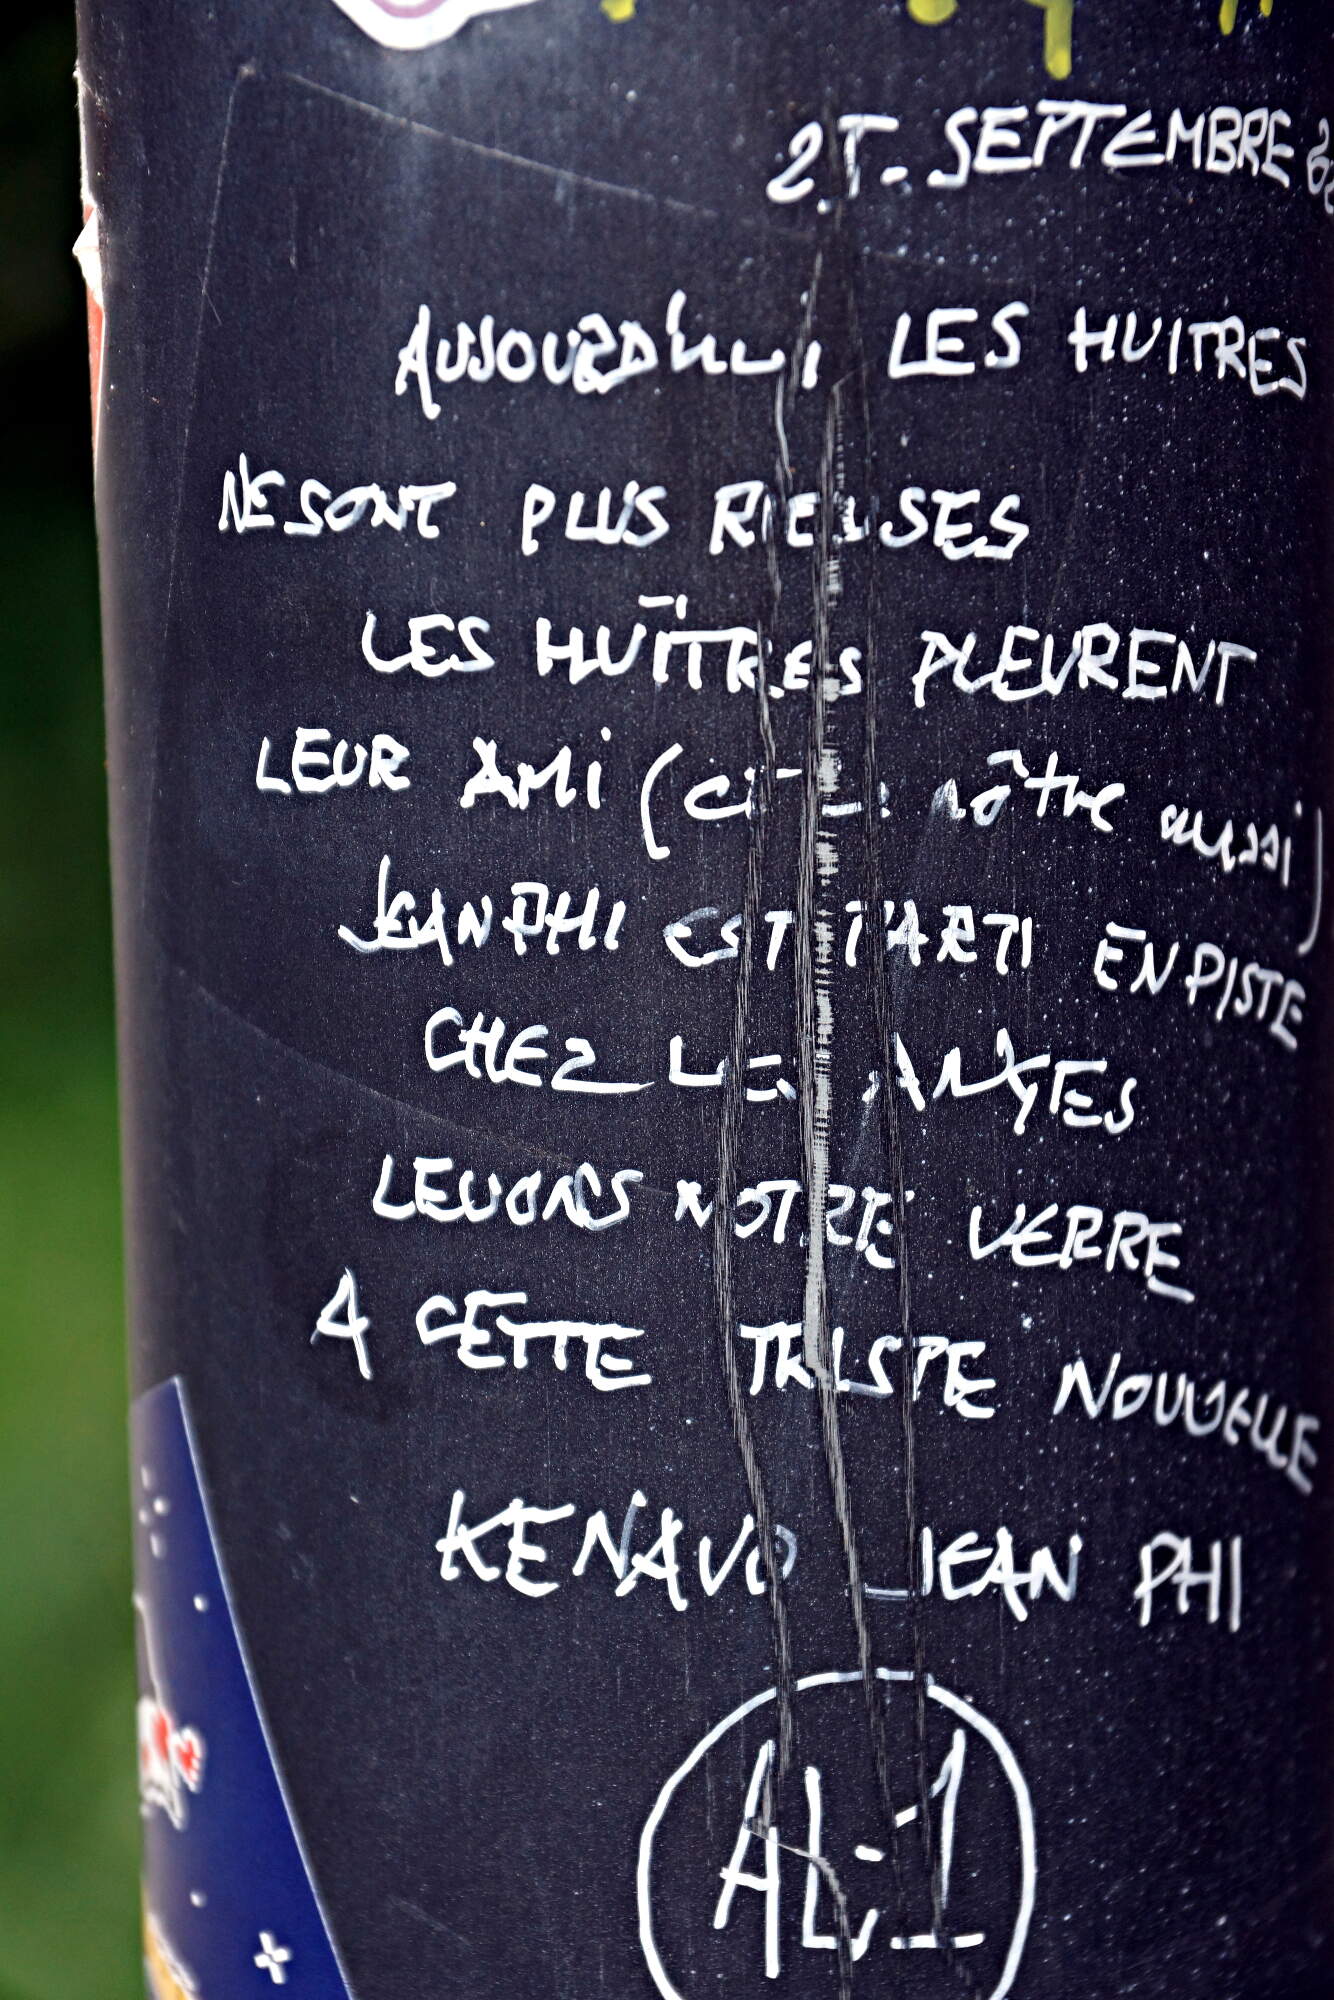 SEPTEMBRE
AUJOURD'HUI LES HUITRES
NE SONT PLUS RIEUSES
LES HUÎTRES PLEURENT
LEUR AMI ( nôtre aussi)
JEAN PHI EST PARTI EN PISTE
CHEZ LES ANGES
LEVONS NOTRE VERRE
A CETTE TRISTE NOUVELLE
KENAVO JEAN PHI